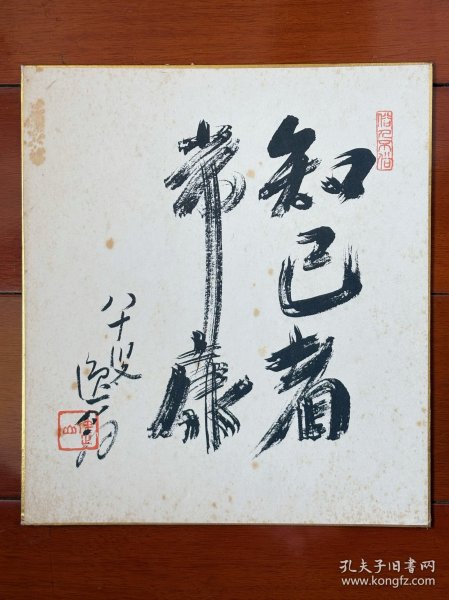 知己者
常康
八十叟
逸翁
孔夫子旧书网
www.kongfz.com